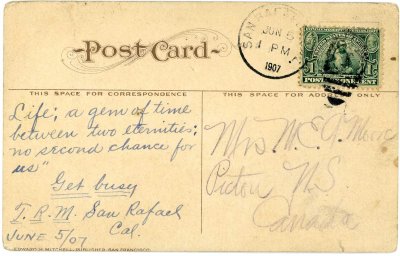 Post Card
SAN RAFAEL
JUN 5
1 PM
1907
POSTAGE ONE CENT
THIS SPACE FOR CORRESPONDENCE
THIS SPACE FOR ADDRESS ONLY
Life; a gem of time
between two eternities;
no second chance for
us"
Get busy
T. R. M. San Rafael
Cal.
JUNE 5/07
Mrs. M. C. A.
Pictou N S
Canada
EDWARD H. MITCHELL, PUBLISHER, SAN FRANCISCO.